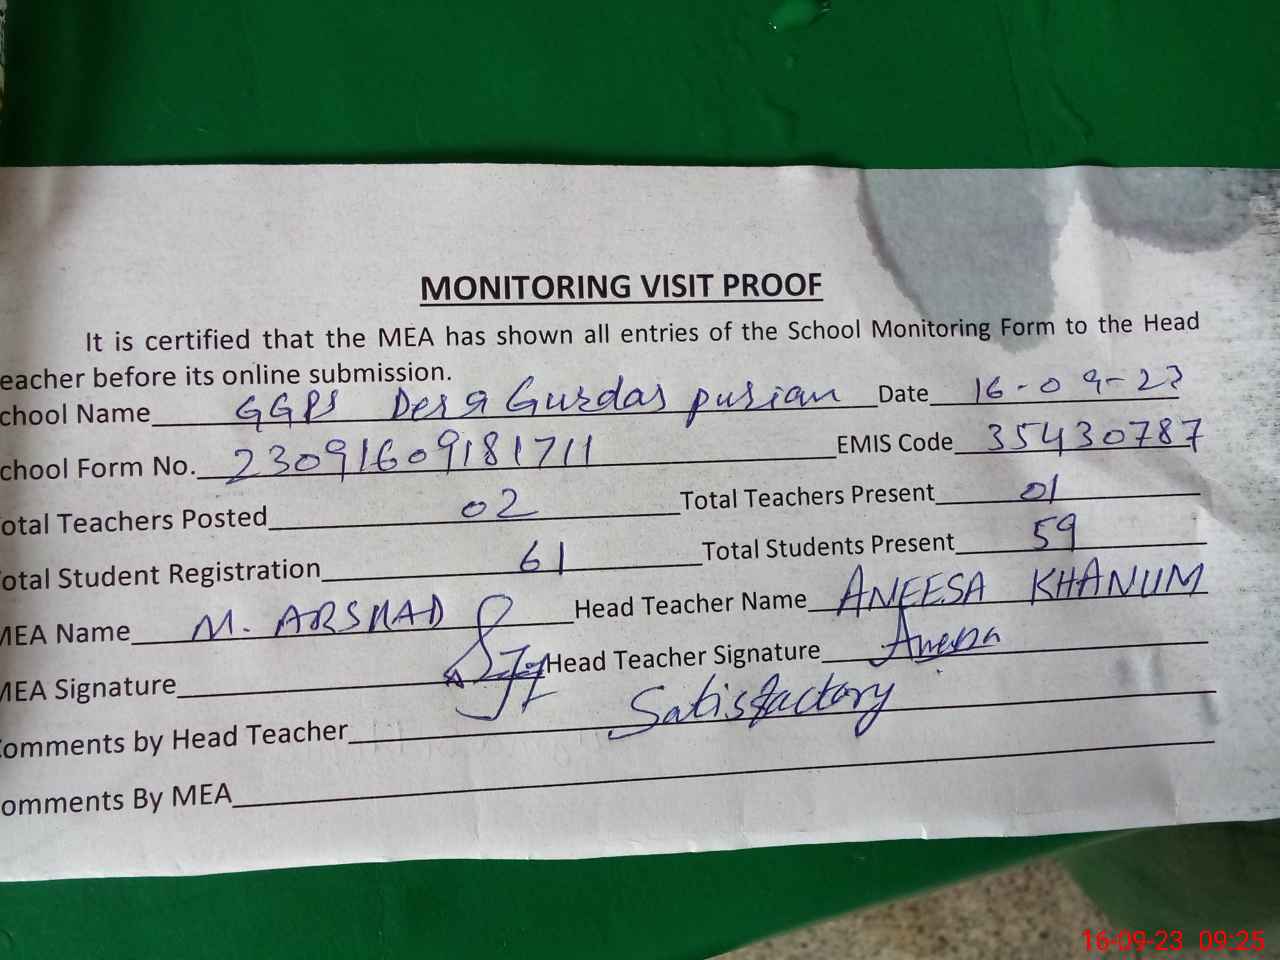 MONITORING VISIT PROOF
It is certified that the MEA has shown all entries of the School Monitoring Form to the Head
eacher before its online submission.
chool Name GGPS Dera Gurdas purian Date 16-09-23
chool Form No. 23091609181711 EMIS Code 35430787
otal Teachers Posted 02 Total Teachers Present 01
otal Student Registration 61 Total Students Present 59
MEA Name M. ARSHAD Head Teacher Name ANEESA KHANUM
MEA Signature Head Teacher Signature Aneesa
omments by Head Teacher Satisfactory
omments By MEA
16-09-23 09:25